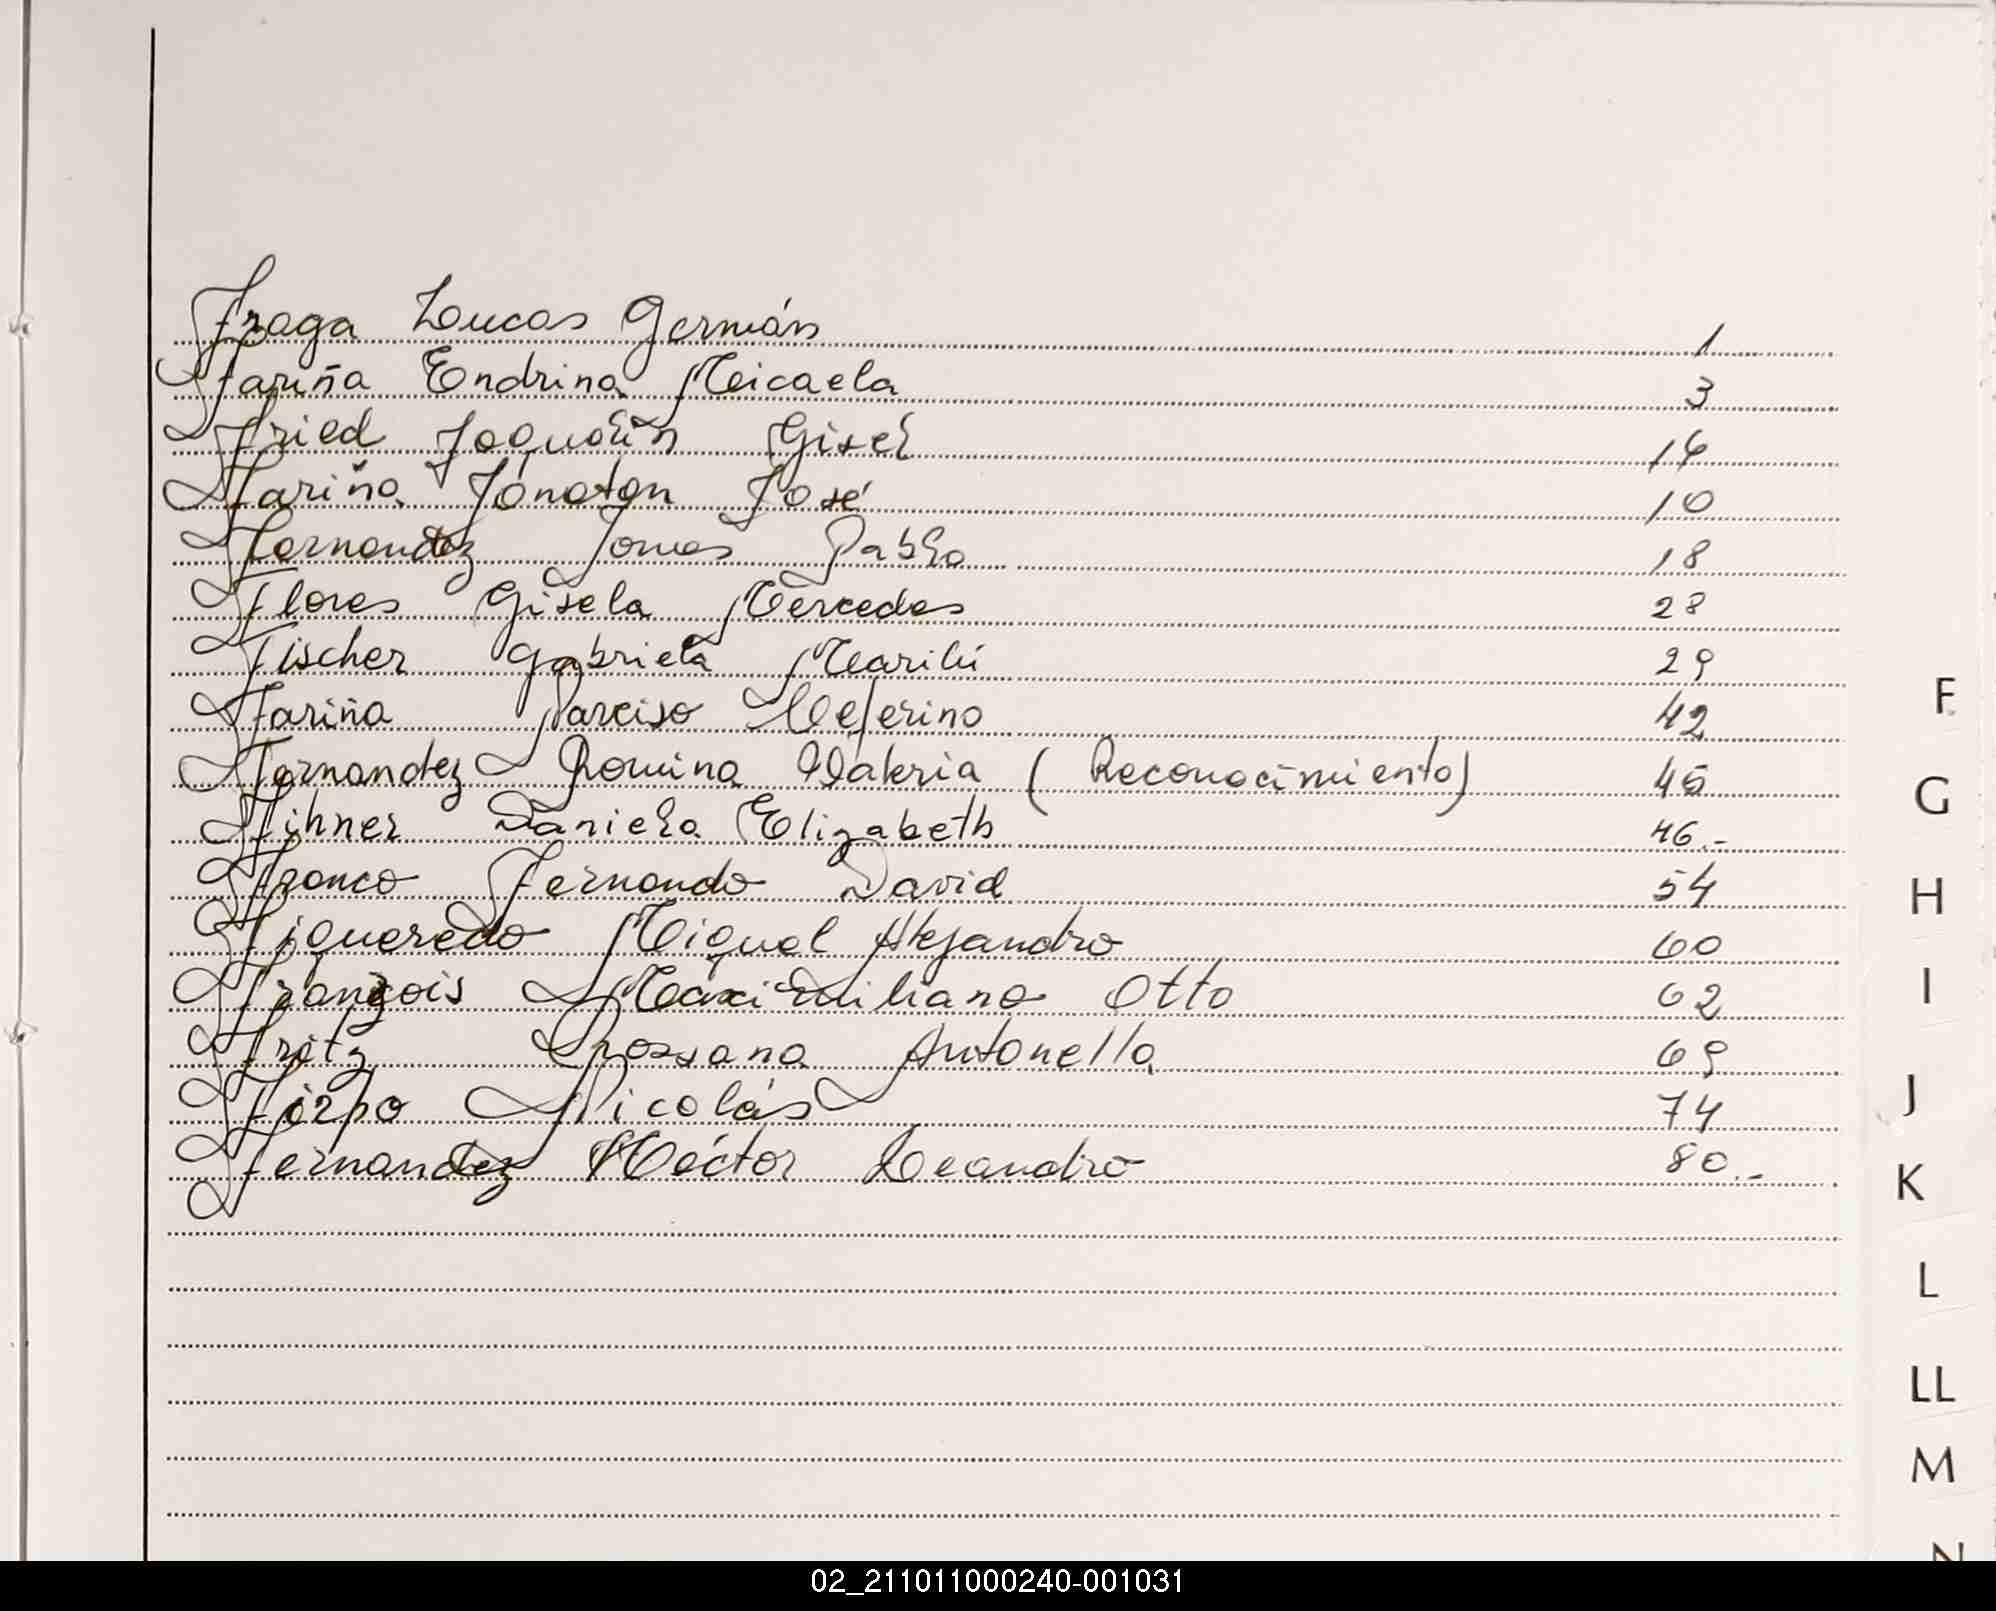 Fraga Loucas Germán 1
Fariña Endrina Micaela 3
Fried Joquelín Gisel 14
Fariña Jónatan José 10
Fernandez Tomas Pablo 18
Flores Gisela Mercedes 28
Fischer Gabriela Marilú 29
Fariña Narciso Ceferino 42
F
Fernandez Romina Valeria (Reconocimiento) 45
G
Daniela Elizabeth 46.-
Franco Fernando David 54
H
Figueredo Miguel Alejandro 60
I
François Maximiliano Otto 62
Fritz Rossana Antonella 69
J
Firpo Nicolás 74
Fernandez Héctor Leandro 80.-
K
L
LL
M
N
02_211011000240-001031